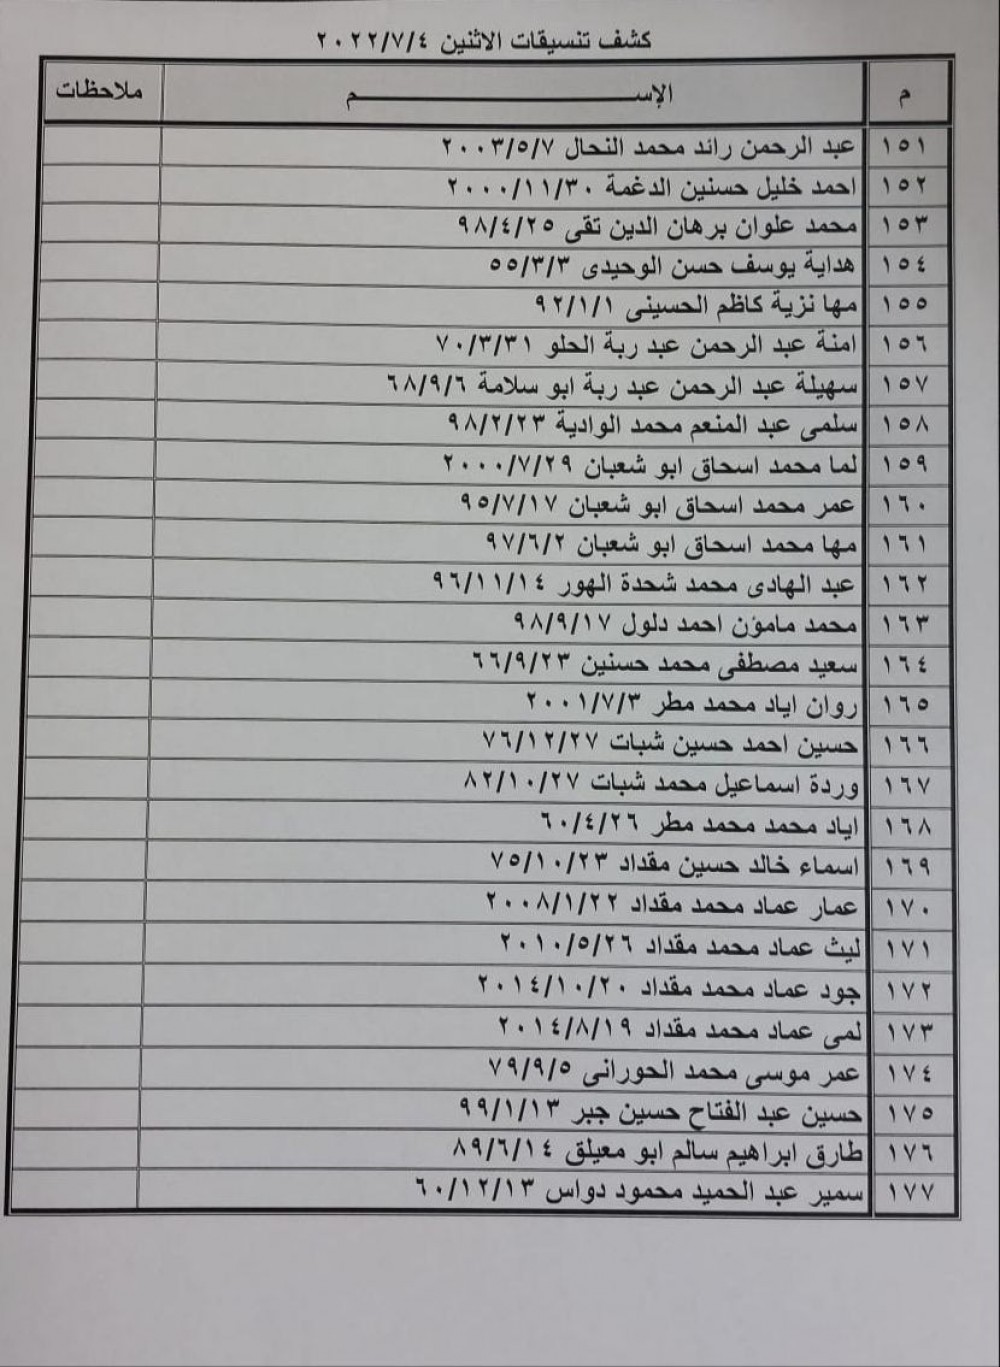 كشف تنسيقات الاثنين ٢٠٢٢/٧/٤
م الإســـــــــــــــــــــــــم ملاحظات
١٥١ عبد الرحمن رائد محمد النحال ٢٠٠٣/٥/٧
١٥٢ احمد خليل حسنين الدغمة ٢٠٠٠/١١/٣٠
١٥٣ محمد علوان برهان الدين تقى ٩٨/٤/٢٥
١٥٤ هداية يوسف حسن الوحيدى ٥٥/٣/٣
١٥٥ مها نزية كاظم الحسينى ٩٢/١/١
١٥٦ امنة عبد الرحمن عبد ربة الحلو ٧٠/٣/٣١
١٥٧ سهيلة عبد الرحمن عبد ربة ابو سلامة ٦٨/٩/٦
١٥٨ سلمى عبد المنعم محمد الوادية ٩٨/٢/٢٣
١٥٩ لما محمد اسحاق ابو شعبان ٢٠٠٠/٧/٢٩
١٦٠ عمر محمد اسحاق ابو شعبان ٩٥/٧/١٧
١٦١ مها محمد اسحاق ابو شعبان ٩٧/٦/٢
١٦٢ عبد الهادى محمد شحدة الهور ٩٦/١١/١٤
١٦٣ محمد مامؤن احمد دلول ٩٨/٩/١٧
١٦٤ سعيد مصطفى محمد حسنين ٦٦/٩/٢٣
١٦٥ روان اياد محمد مطر ٢٠٠١/٧/٣
١٦٦ حسين احمد حسين شبات ٧٦/١٢/٢٧
١٦٧ وردة اسماعيل محمد شبات ٨٢/١٠/٢٧
١٦٨ اياد محمد محمد مطر ٦٠/٤/٢٦
١٦٩ اسماء خالد حسين مقداد ٧٥/١٠/٢٣
١٧٠ عمار عماد محمد مقداد ٢٠٠٨/١/٢٢
١٧١ ليث عماد محمد مقداد ٢٠١٠/٥/٢٦
١٧٢ جود عماد محمد مقداد ٢٠١٤/١٠/٢٠
١٧٣ لمى عماد محمد مقداد ٢٠١٤/٨/١٩
١٧٤ عمر موسى محمد الحورانى ٧٩/٩/٥
١٧٥ حسين عبد الفتاح حسين جبر ٩٩/١/١٣
١٧٦ طارق ابراهيم سالم ابو معيلق ٨٩/٦/١٤
١٧٧ سمير عبد الحميد محمود دواس ٦٠/١٢/١٣